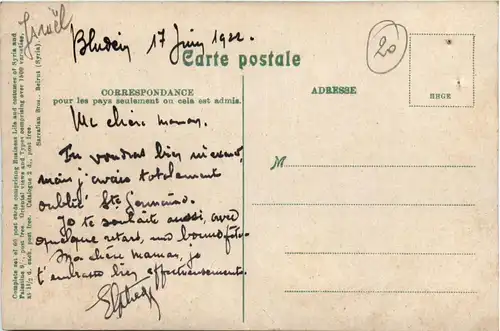 Israël
Bludein 17 Juin 1922.
20
Carte postale
CORRESPONDANCE
pour les pays seulement ou cela est admis.
ADRESSE
BHGE
Complete set of 60 post cards comprising Business Life and costumes of Syria and
Palestine post free. Oriental views and Types comprising over 1000 varieties,
at 1½ d. each, post free. Catalogue 2 d., post free.
Sarrafian Bros., Beirut (Syria).
Ma chère maman,
Tu voudras bien m'excuser,
mais j'avais totalement
oublié Ste Germaine.
Je te souhaite aussi, avec
quelque retard, une bonne fête.
Ma chère maman, je
t'embrasse bien affectueusement.
M